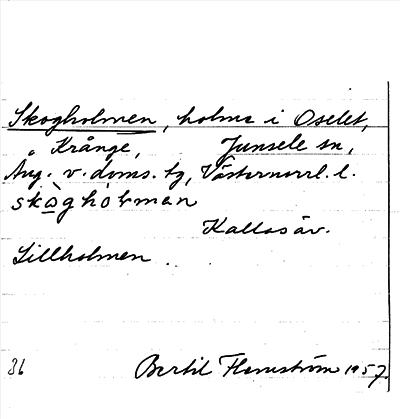 Skogholmen, holme i Oselet,
Krånge, Junsele sn,
Ång. v. doms. tg, Västernorrl. l.
skòghòlman
Kallas äv.
Lillholmen
36 Bertil Flemström 1957